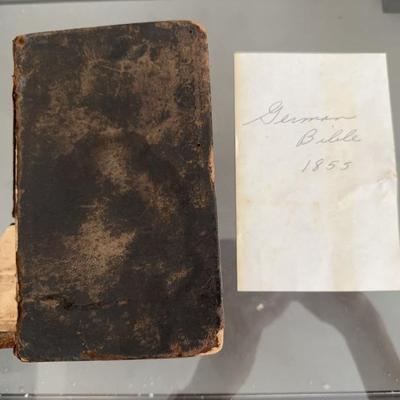 German
Bible
1855